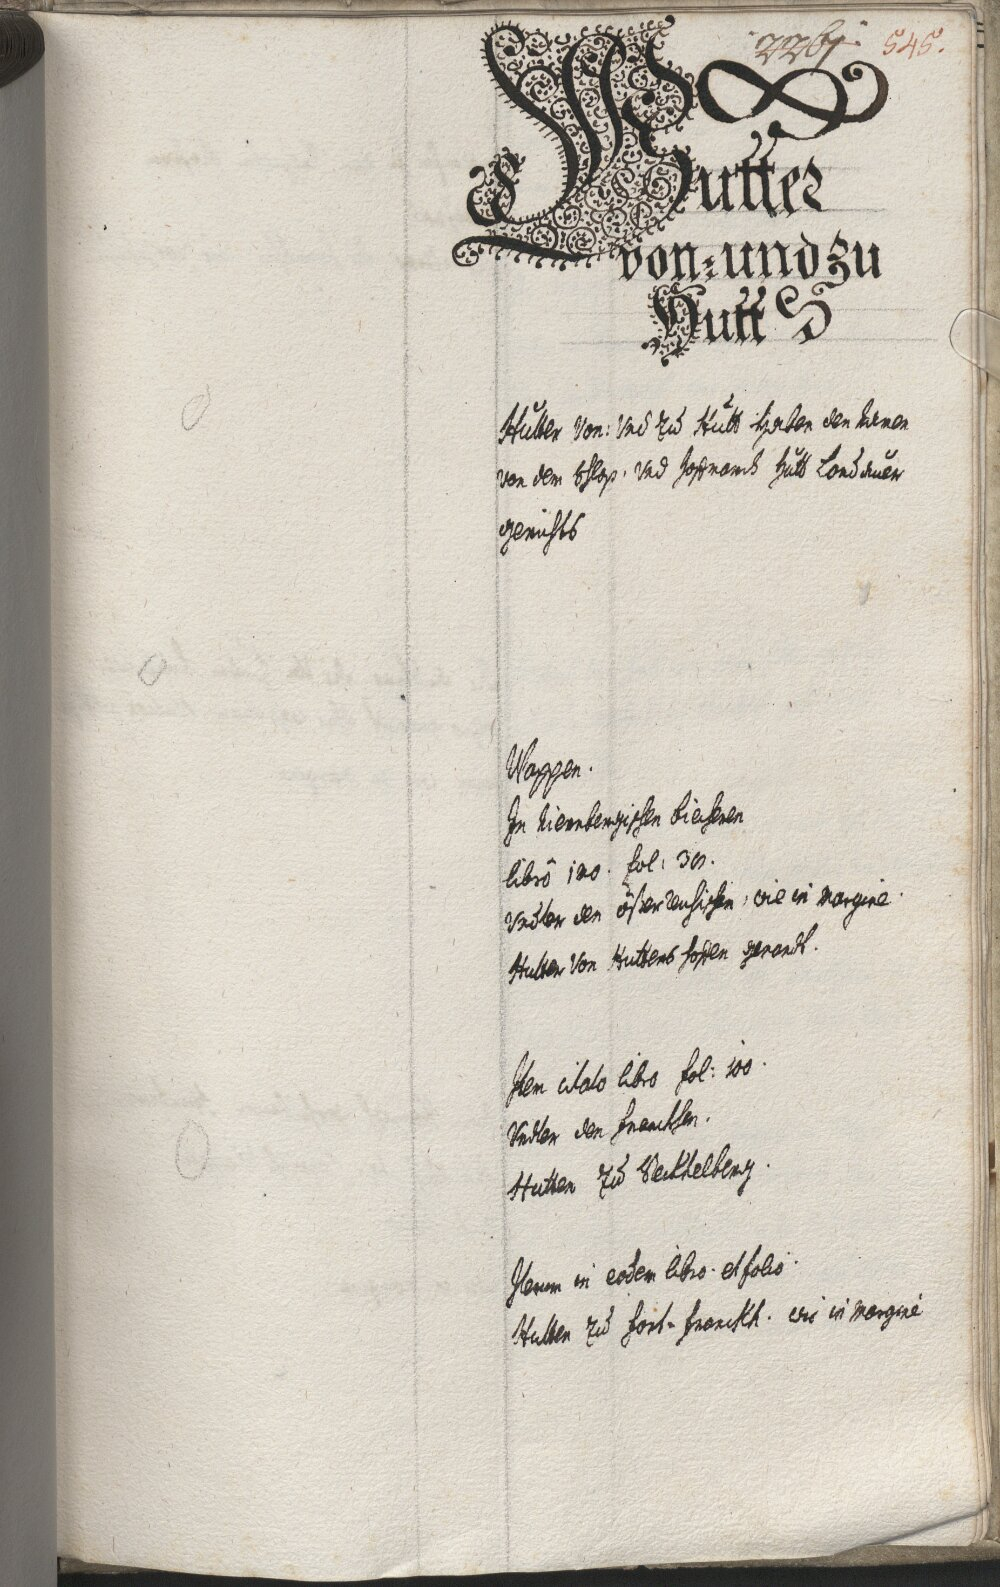 545.
Hutter
von: und zu
Hutt
Hutter von: und zu Hutt haben den namen
von dem Schloß. und hoffmarch hutt Landauer
gerichts
Wappen.
In Niernbergischen biecheren
librô 120. fol: 30.
Undter den österreichischen, wie in margine.
Hutter von Hutters hoffen genandt.
Item citato libro fol: 100.
Undter den franckhen.
Hutten zu Steckhelberg.
Iterum in eodem libro. et folio.
Hutten zu fort- franckh. wie in margine